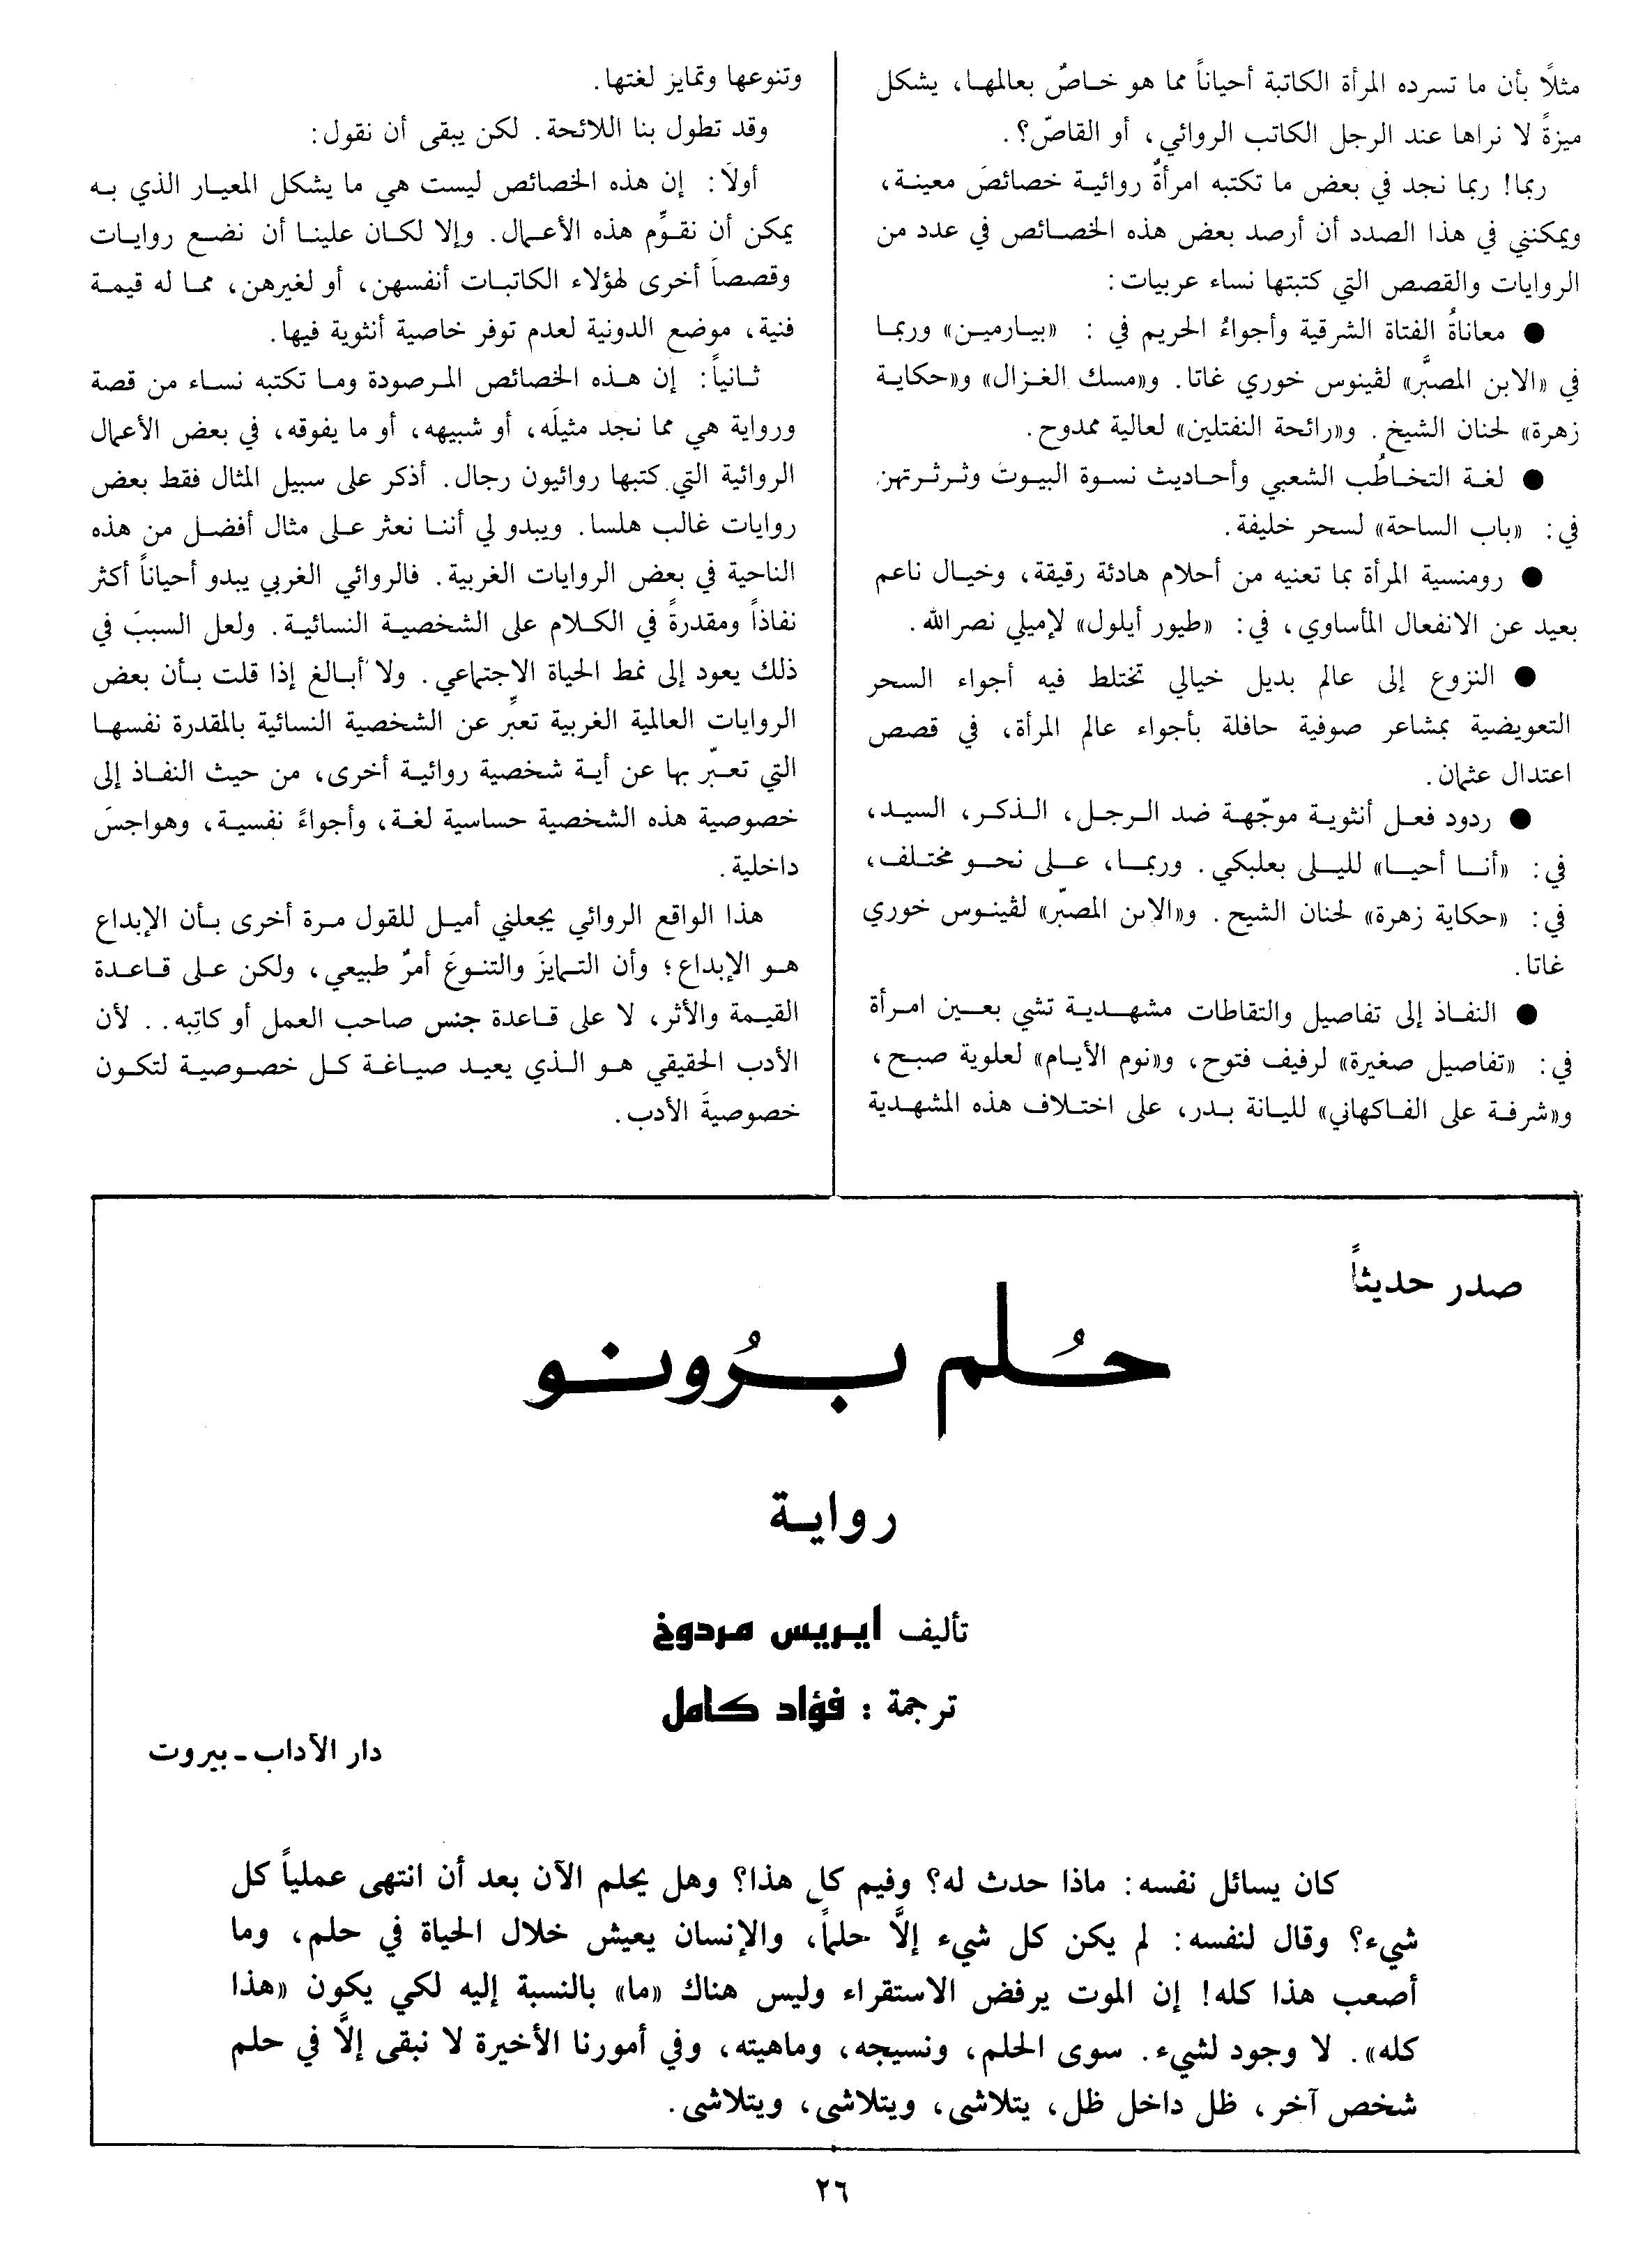 مثلًا بأن ما تسرده المرأة الكاتبة أحياناً مما هو خاصٌ بعالمها، يشكل
ميزةً لا نراها عند الرجل الكاتب الروائي، أو القاصّ؟.
ربما! ربما نجد في بعض ما تكتبه امرأةٌ روائية خصائصَ معينة،
ويمكنني في هذا الصدد أن أرصد بعض هذه الخصائص في عدد من
الروايات والقصص التي كتبتها نساء عربيات:
● معاناةُ الفتاة الشرقية وأجواءُ الحريم في : «بيارمين» وربما
في «الابن المصبَّر» لڤينوس خوري غاتا. و«مسك الغزال» و«حكاية
زهرة» لحنان الشيخ. و«رائحة النفتلين» لعالية ممدوح.
● لغة التخاطُب الشعبي وأحاديث نسوة البيوت وثرثرتهن
في: «باب الساحة» لسحر خليفة.
● رومنسية المرأة بما تعنيه من أحلام هادئة رقيقة، وخيال ناعم
بعيد عن الانفعال المأساوي، في: «طيور أيلول» لإميلي نصرالله.
● النزوع إلى عالم بديل خيالي تختلط فيه أجواء السحر
التعويضية بمشاعر صوفية حافلة بأجواء عالم المرأة، في قصص
اعتدال عثمان.
● ردود فعل أنثوية موجّهة ضد الرجل، الذكر، السيد،
في: «أنا أحيا» لليلى بعلبكي. وربما، على نحو مختلف،
في: «حكاية زهرة» لحنان الشيخ. و«الابن المصبّر» لڤينوس خوري
غاتا.
● النفاذ إلى تفاصيل والتقاطات مشهدية تشي بعين امرأة
في: «تفاصيل صغيرة» لرفيف فتوح، و«نوم الأيام» لعلوية صبح،
و«شرفة على الفاكهاني» لليانة بدر، على اختلاف هذه المشهدية
وتنوعها وتمايز لغتها.
وقد تطول بنا اللائحة. لكن يبقى أن نقول:
أولاً: إن هذه الخصائص ليست هي ما يشكل المعيار الذي به
يمكن أن نقوِّم هذه الأعمال. وإلا لكان علينا أن نضع روايات
وقصصاً أخرى لهؤلاء الكاتبات أنفسهن، أو لغيرهن، مما له قيمة
فنية، موضع الدونية لعدم توفر خاصية أنثوية فيها.
ثانياً: إن هذه الخصائص المرصودة وما تكتبه نساء من قصة
ورواية هي مما نجد مثيلَه، أو شبيهه، أو ما يفوقه، في بعض الأعمال
الروائية التي كتبها روائيون رجال. أذكر على سبيل المثال فقط بعض
روايات غالب هلسا. ويبدو لي أننا نعثر على مثال أفضل من هذه
الناحية في بعض الروايات الغربية. فالروائي الغربي يبدو أحياناً أكثر
نفاذاً ومقدرةً في الكلام على الشخصية النسائية. ولعل السببَ في
ذلك يعود إلى نمط الحياة الاجتماعي. ولا أبالغ إذا قلت بأن بعض
الروايات العالمية الغربية تعبِّر عن الشخصية النسائية بالمقدرة نفسها
التي تعبّر بها عن أية شخصية روائية أخرى، من حيث النفاذ إلى
خصوصية هذه الشخصية حساسية لغة، وأجواءً نفسية، وهواجسَ
داخلية.
هذا الواقع الروائي يجعلني أميل للقول مرة أخرى بأن الإبداع
هو الإبداع؛ وأن التمايزَ والتنوعَ أمرٌ طبيعي، ولكن على قاعدة
القيمة والأثر، لا على قاعدة جنس صاحب العمل أو كاتِبه.. لأن
الأدب الحقيقي هو الذي يعيد صياغة كل خصوصية لتكون
خصوصيةَ الأدب.
صدر حديثاً
حُلم برُونو
رواية
تأليف ايريس مردوخ
ترجمة : فؤاد كامل
دار الآداب - بيروت
كان يسائل نفسه: ماذا حدث له؟ وفيم كل هذا؟ وهل يحلم الآن بعد أن انتهى عملياً كل
شيء؟ وقال لنفسه: لم يكن كل شيء إلَّا حلماً، والإنسان يعيش خلال الحياة في حلم، وما
أصعب هذا كله! إن الموت يرفض الاستقراء وليس هناك «ما» بالنسبة إليه لكي يكون «هذا
كله». لا وجود لشيء. سوى الحلم، ونسيجه، وماهيته، وفي أمورنا الأخيرة لا نبقى إلَّا في حلم
شخص آخر، ظل داخل ظل، يتلاشى، ويتلاشى، ويتلاشى.
٢٦